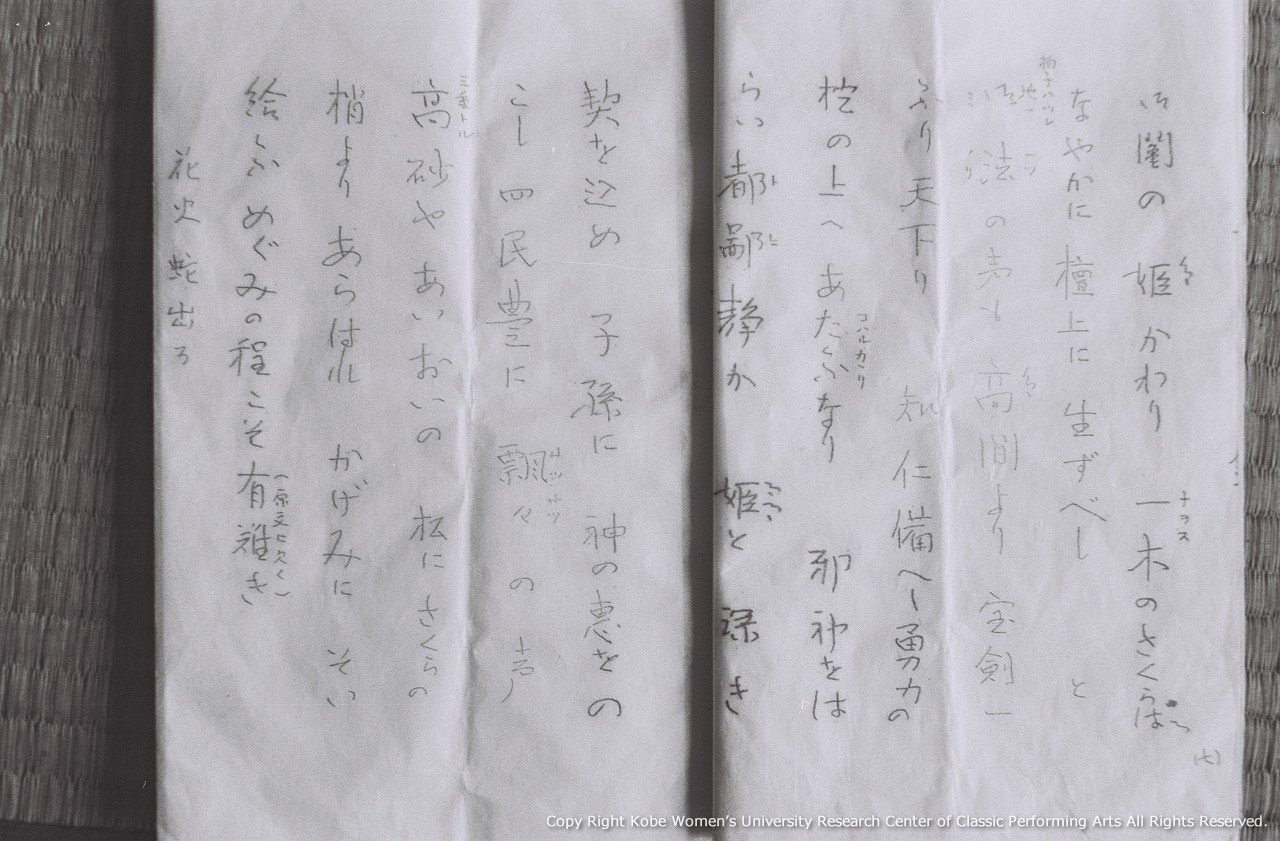 闇の 姫かわり 一木のさくらは
ナヲス
なやかに 檀上に 生ずべし と
拍子ハツレ
法の声も 高間より 宝剣一
ふり 天下り 知仁備へし 勇力の
枕の上へ あたふなり 邪神をは
コハルカヽリ
らい 都鄙静か 姫と 深き
契を込め 子孫に 神の恵をの
こし 四民豊に 飄々の声
サツサツ
高砂や あいおいの 松に さくらの
三重トル
梢より あらはれ かげみに そい
絵ふ めぐみの程こそ有難き
(原文ヒ欠く)
花火 蛇出ろ
(七)
Copy Right Kobe Women's University Research Center of Classic Performing Arts All Rights Reserved.